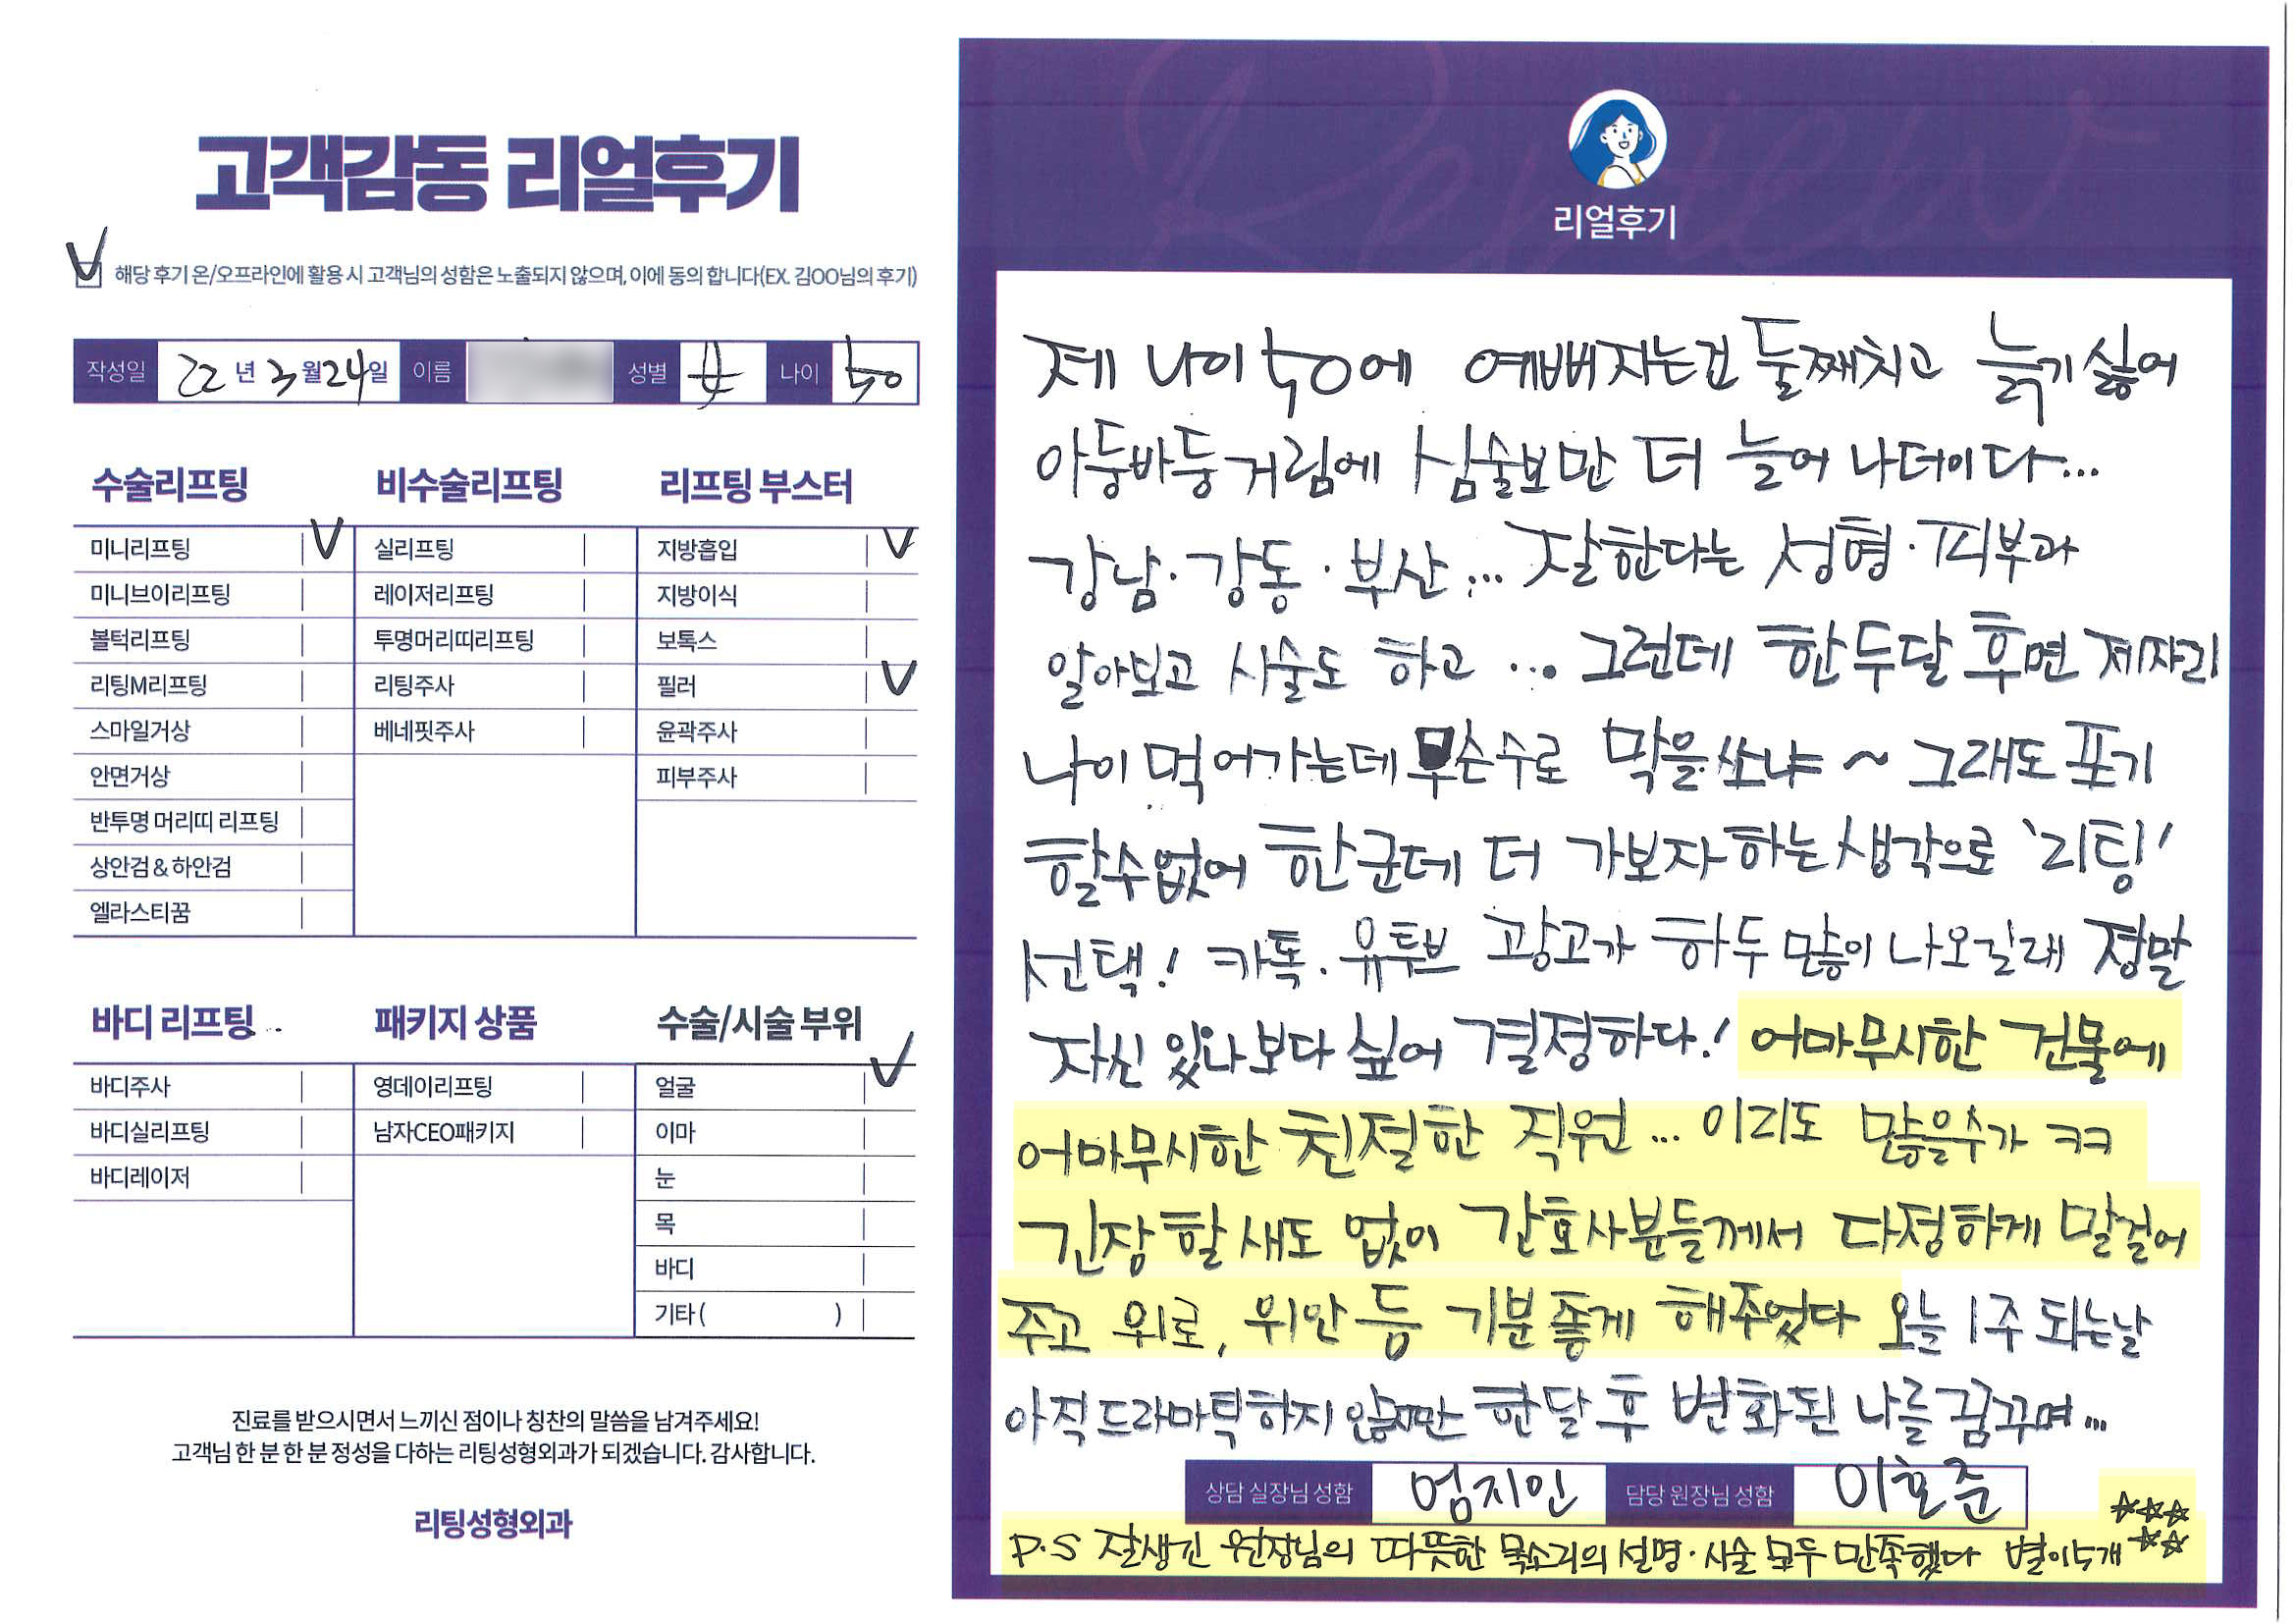 고객감동 리얼후기
V 해당 후기 온/오프라인에 활용 시 고객님의 성함은 노출되지 않으며, 이에 동의 합니다(EX. 김OO님의 후기)
작성일 22년 3월 24일 이름 성별 女 나이 50
수술리프팅
미니리프팅 V
미니브이리프팅
볼턱리프팅
리팅M리프팅
스마일거상
안면거상
반투명 머리띠 리프팅
상안검 & 하안검
엘라스티꿈
비수술리프팅
실리프팅
레이저리프팅
투명머리띠리프팅
리팅주사
베네핏주사
리프팅 부스터
지방흡입 V
지방이식
보톡스
필러 V
윤곽주사
피부주사
바디 리프팅
바디주사
바디실리프팅
바디레이저
패키지 상품
영데이리프팅
남자CEO패키지
수술/시술 부위
얼굴 V
이마
눈
목
바디
기타 ( )
진료를 받으시면서 느끼신 점이나 칭찬의 말씀을 남겨주세요!
고객님 한 분 한 분 정성을 다하는 리팅성형외과가 되겠습니다. 감사합니다.
리팅성형외과
Review
리얼후기
제 나이 50에 예뻐지는건 둘째치고 늙기 싫어
아둥바둥 거림에 심술보만 더 늘어 나더이다...
강남·강동·부산... 잘한다는 성형·피부과
알아보고 시술도 하고 ... 그런데 한두달 후면 제자리
나이 먹어가는데 무슨수로 막을쏘냐 ~ 그래도 포기
할수없어 한군데 더 가보자 하는 생각으로 '리팅'
선택! 카톡. 유투브 광고가 하두 많이 나오길래 정말
자신 있나보다 싶어 결정하다! 어마무시한 건물에
어마무시한 친절한 직원... 이리도 많을수가 ㅋㅋ
긴장 할 새도 없이 간호사분들께서 다정하게 말걸어
주고 위로, 위안 등 기분 좋게 해주었다 오늘 1주 되는날
아직 드라마틱하지 않지만 한달 후 변화된 나를 꿈꾸며...
상담 실장님 성함 엄지인 담당 원장님 성함 이호준
P.S 잘생긴 원장님의 따뜻한 목소리의 설명·시술 모두 만족했다 별이 5개 ☆☆☆☆☆